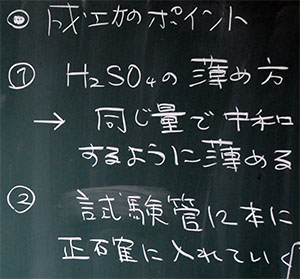 ◎ 成功のポイント
① H₂SO₄の薄め方
→ 同じ量で中和
するように薄める
② 試験管12本に
正確に入れていく